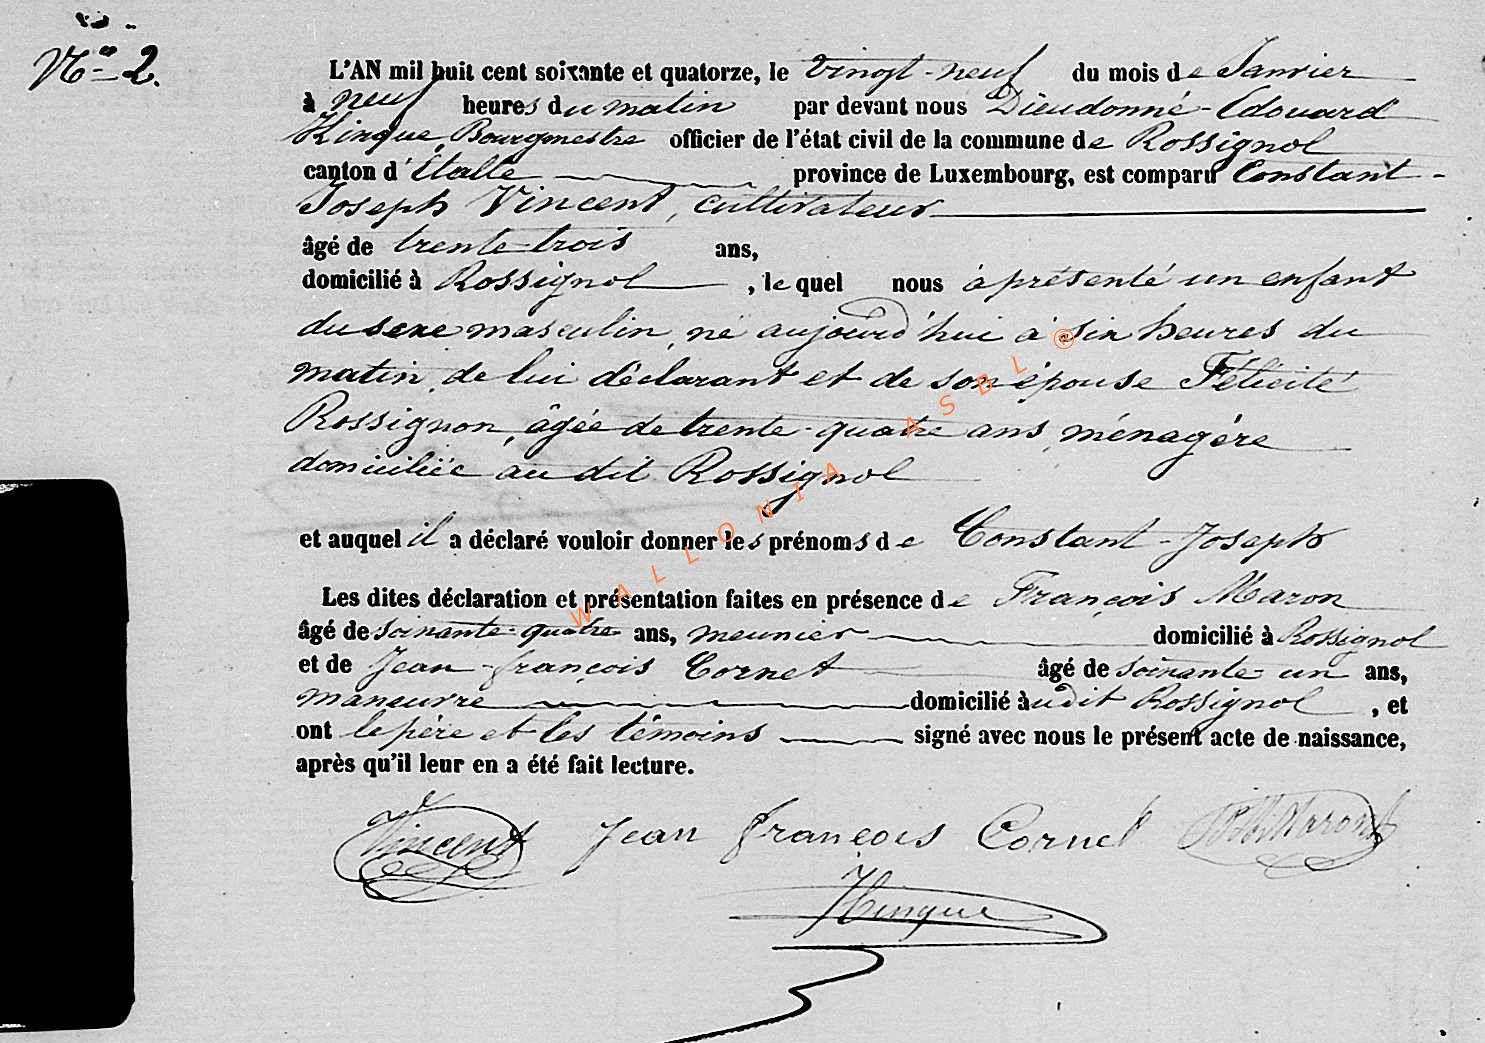 No 2.
L'AN mil huit cent soixante et quatorze, le vingt-neuf du mois de Janvier
à neuf heures du matin par devant nous Dieudonné-Edouard
Hinque, Bourgmestre officier de l'état civil de la commune de Rossignol
canton d'Etalle province de Luxembourg, est comparu Constant-
Joseph Vincent, cultivateur
âgé de trente-trois ans,
domicilié à Rossignol, le quel nous à présenté un enfant
du sexe masculin, né aujourd'hui à six heures du
matin, de lui déclarant et de son épouse Félicité
Rossignon, âgée de trente-quatre ans, ménagère
domiciliée au dit Rossignol
et auquel il a déclaré vouloir donner les prénoms de Constant-Joseph
Les dites déclaration et présentation faites en présence de François Maron
âgé de soixante-quatre ans, meunier domicilié à Rossignol
et de Jean-françois Cornet âgé de soixante-un ans,
maneuvre domicilié audit Rossignol, et
ont le père et les témoins signé avec nous le présent acte de naissance,
après qu'il leur en a été fait lecture.
Vincent Jean françois Cornet Maron
Hinque
WALLONIA ASBL @